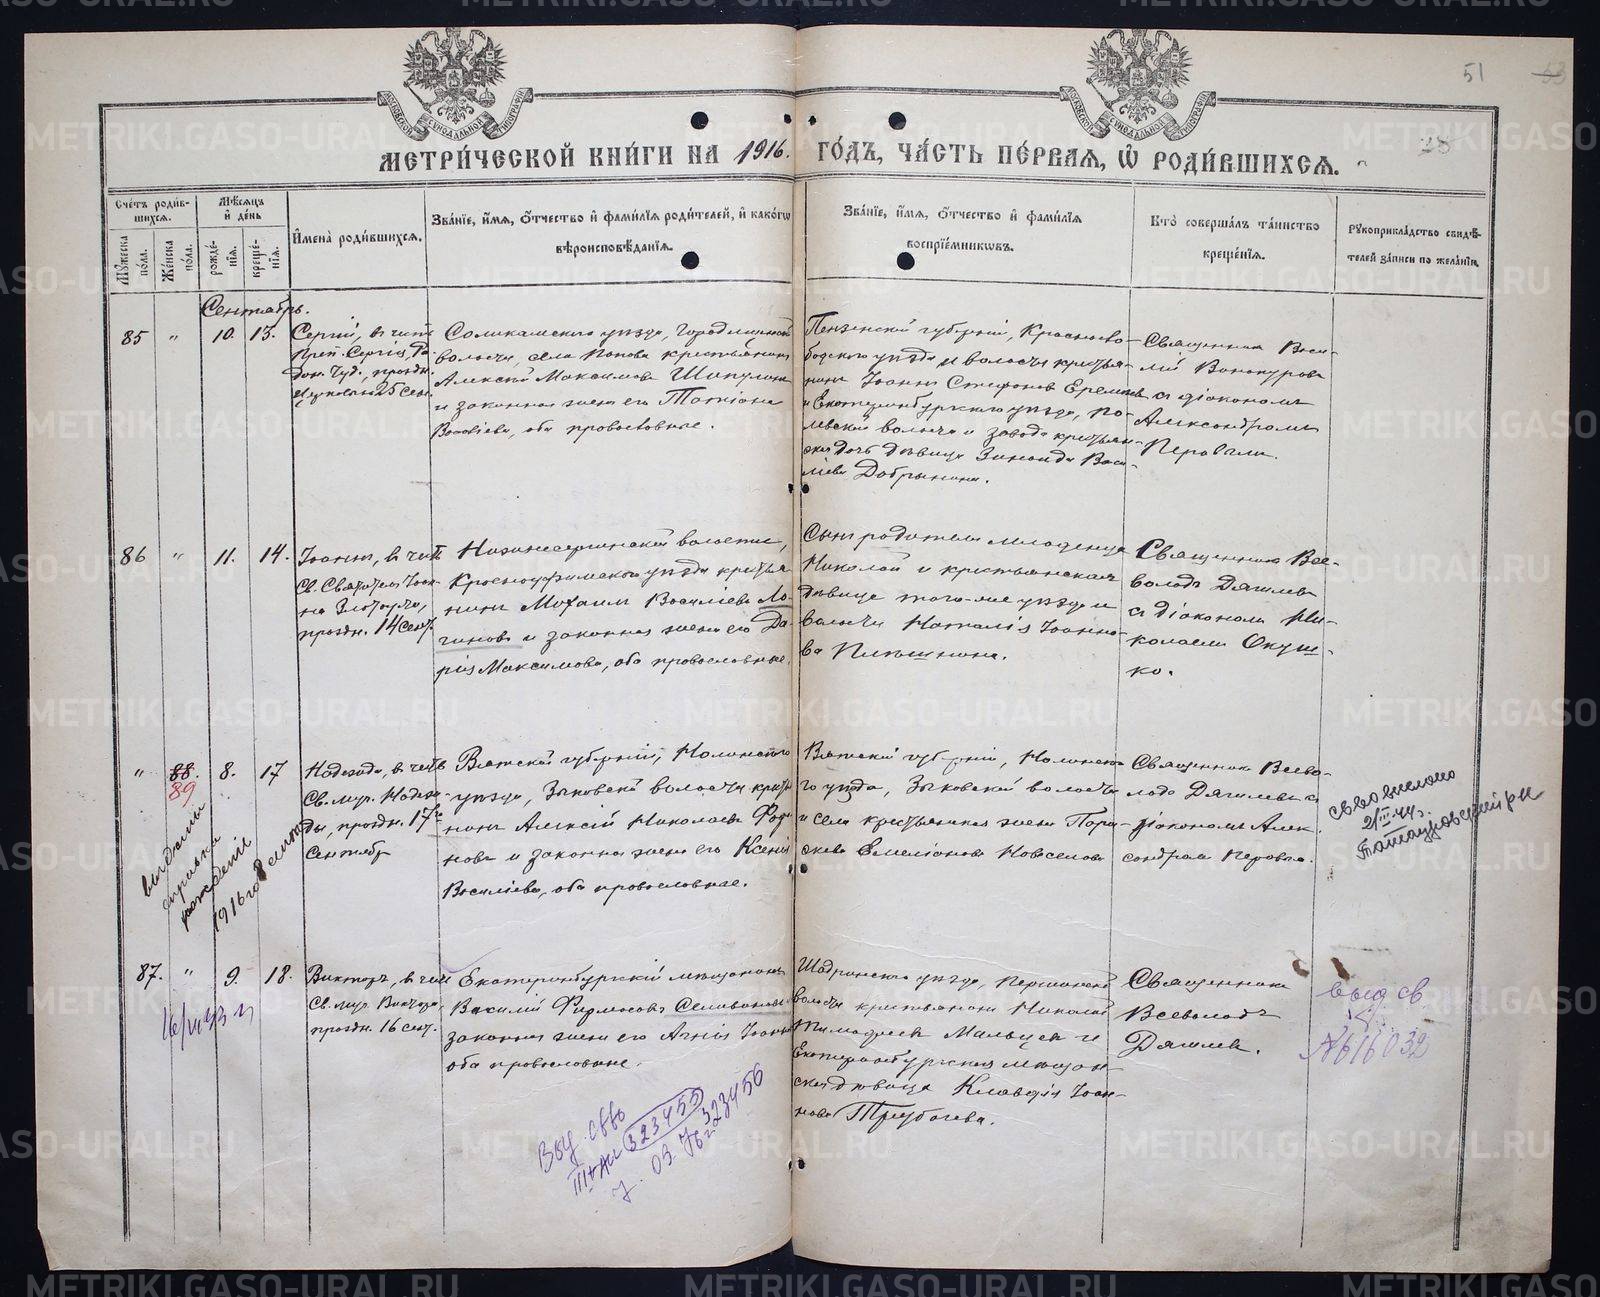 51 53
МОСКОВСКОЙ СѴНОДАЛЬНОЙ ТИПОГРАФІИ
МОСКОВСКОЙ СѴНОДАЛЬНОЙ ТИПОГРАФІИ
28
МЕТРИ́ЧЕСКОЙ КНИ́ГИ НА 1916. ГО́ДЪ, ЧА́СТЬ ПЕ́РВАѦ, Ѡ҆ РОДИ́ВШИХСѦ.
Сче́тъ роди́в-
шихсѧ.
Мꙋ́жеска по́ла.
Же́нска по́ла.
Мѣ́сѧцъ и҆ де́нь
рожде́нїѧ.
креще́нїѧ.
И҆мена̀ роди́вшихсѧ.
Зва́нїе, и҆́мѧ, ѻ҆́тчество и҆ фами́лїѧ роди́телей, и҆ како́гѡ
вѣроисповѣ́данїѧ.
Зва́нїе, и҆́мѧ, ѻ҆́тчество и҆ фами́лїѧ
воспрїе́мникѡвъ.
Кто̀ соверша́лъ та́инство
креще́нїѧ.
Рꙋкоприкла́дство свидѣ́-
телей за́писи по жела́нїю.
Сентябрь.
85 " 10. 13.
Сергій, в честь
Преп. Сергія, Ра-
дон. Чуд., праздн.
25 Сен.
Соликамскаго уѣзда, Городищенской
волости, села Попова крестьянинъ
Алексѣй Максимовъ Шапулинъ
и законная жена его Татіана
Васильева, оба православные.
Пензенской губерніи, Краснослo-
бодскаго уѣзда и волости крестья-
нинъ Іоаннъ Стефановъ Еремеевъ
и Екатеринбургскаго уѣзда, По-
левской волости и завода крестьян-
ская дочь дѣвица Зинаида Васи-
ліева Добрынина.
Священникъ Васи-
лій Винокуровъ
съ діакономъ
Александромъ
Перовымъ.
86 " 11. 14.
Іоаннъ, в честь
Св. Святителя Іоан-
на Златоуста,
праздн. 14 сент.
Нижнесергинской волости,
Красноуфимскаго уѣзда крестья-
нинъ Михаилъ Васильевъ Ло-
гиновъ и законная жена его Да-
рія Максимова, оба православные.
Сынъ родителя младенца
Николай и крестьянская
дѣвица того-же уѣзда и
волости Наталія Іоанно-
ва Плѣшкина.
Священникъ Все-
володъ Дягилевъ
съ діакономъ Ни-
колаемъ Окуш-
ко.
" 88. 8. 17
89
Надежда, в честь
Св. муч. Надеж-
ды, праздн. 17го
Сентябр
Вятской губерніи, Нолинскаго
уѣзда, Зыковской волости кресть-
нинъ Алексій Николаевъ
и законная жена его Ксенія
Васильева, оба православные.
Вятской губерніи, Нолинска-
го уѣзда, Зыковской волости
и села крестьянская жена Пара-
скева Емеліанова Новоселова
Священникъ Всево-
лодъ Дягилевъ съ
діакономъ Алек-
сандромъ Перовымъ.
св-во выслано
21/III-44г.
выдана
справка
рождении
1916 год 8 сент
87. " 9. 18.
Викторъ, в честь
Св. муч. Виктора,
праздн. 16 сент.
Екатеринбургскій мѣщанинъ
Василій Фирмосовъ Селивановъ
законная жена его Агнія Іоанн
оба православные.
Шадринскаго уѣзда, Першинской
волости крестьянинъ Николай
Тимофеевъ Мальцевъ и
Екатеринбургская мѣщан-
ская дѣвица Клавдія Іоан-
нова Трубачева.
Священникъ
Всеволодъ
Дягилевъ.
выд св.
№616032
Выд. свво
III-АИ 323455
323456